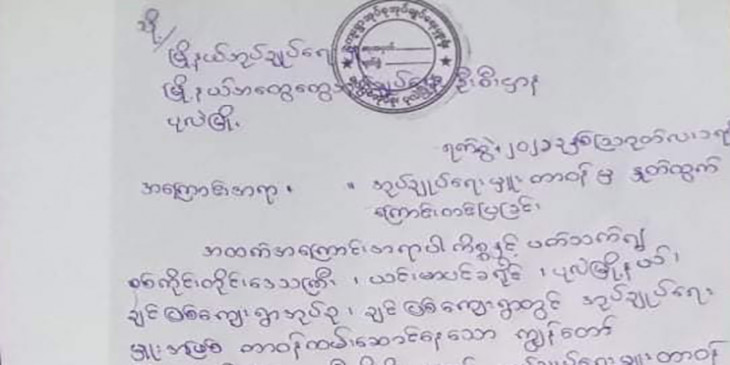 သို့
မြို့နယ်အုပ်ချုပ်ရေး
မြို့နယ်အထွေထွေအုပ်ချုပ်ရေး ဦးစီးဌာန
ပုလဲမြို့
ရက်စွဲ၊ ၂၀၂၁ ခုနှစ် ဩဂုတ်လ
အကြောင်းအရာ ။ ။ အုပ်ချုပ်ရေးမှူး တာဝန်မှ နုတ်ထွက်
ကြောင်းတင်ပြခြင်း
အထက်အကြောင်းအရာပါ ကိစ္စနှင့် ပတ်သက်၍
စစ်ကိုင်းတိုင်းဒေသကြီး ၊ ယင်းမာပင်ခရိုင် ၊ ပုလဲမြို့နယ် ၊
ချင်မြစ်ကျေးရွာအုပ်စု ၊ ချင်မြစ်ကျေးရွာတွင် အုပ်ချုပ်ရေး
မှူးအဖြစ် တာဝန်ထမ်းဆောင်နေသော ကျွန်တော်